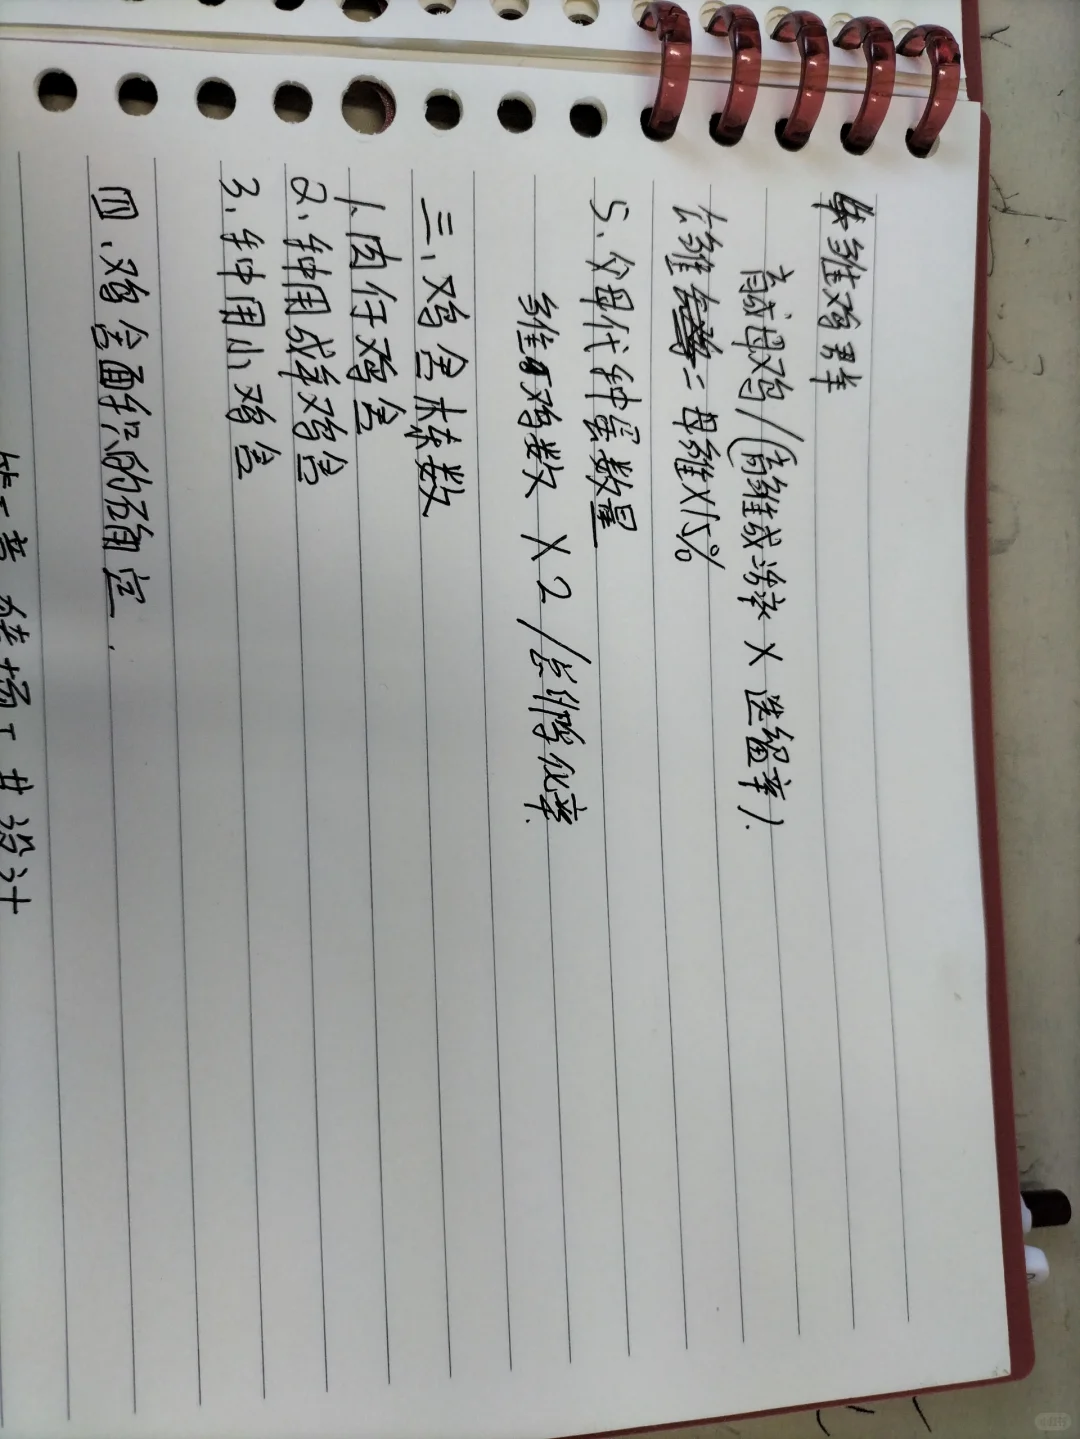 雏鸡群
育成母鸡/(育雏成活率×选留率).
公雏=母雏×15%
5、父母代种蛋数量
雏鸡数×2/总孵化率.
三、鸡舍栋数
1.肉仔鸡舍
2、种用成年鸡舍
3、种用小鸡舍
四、鸡舍面积的确定.
猪场工艺设计